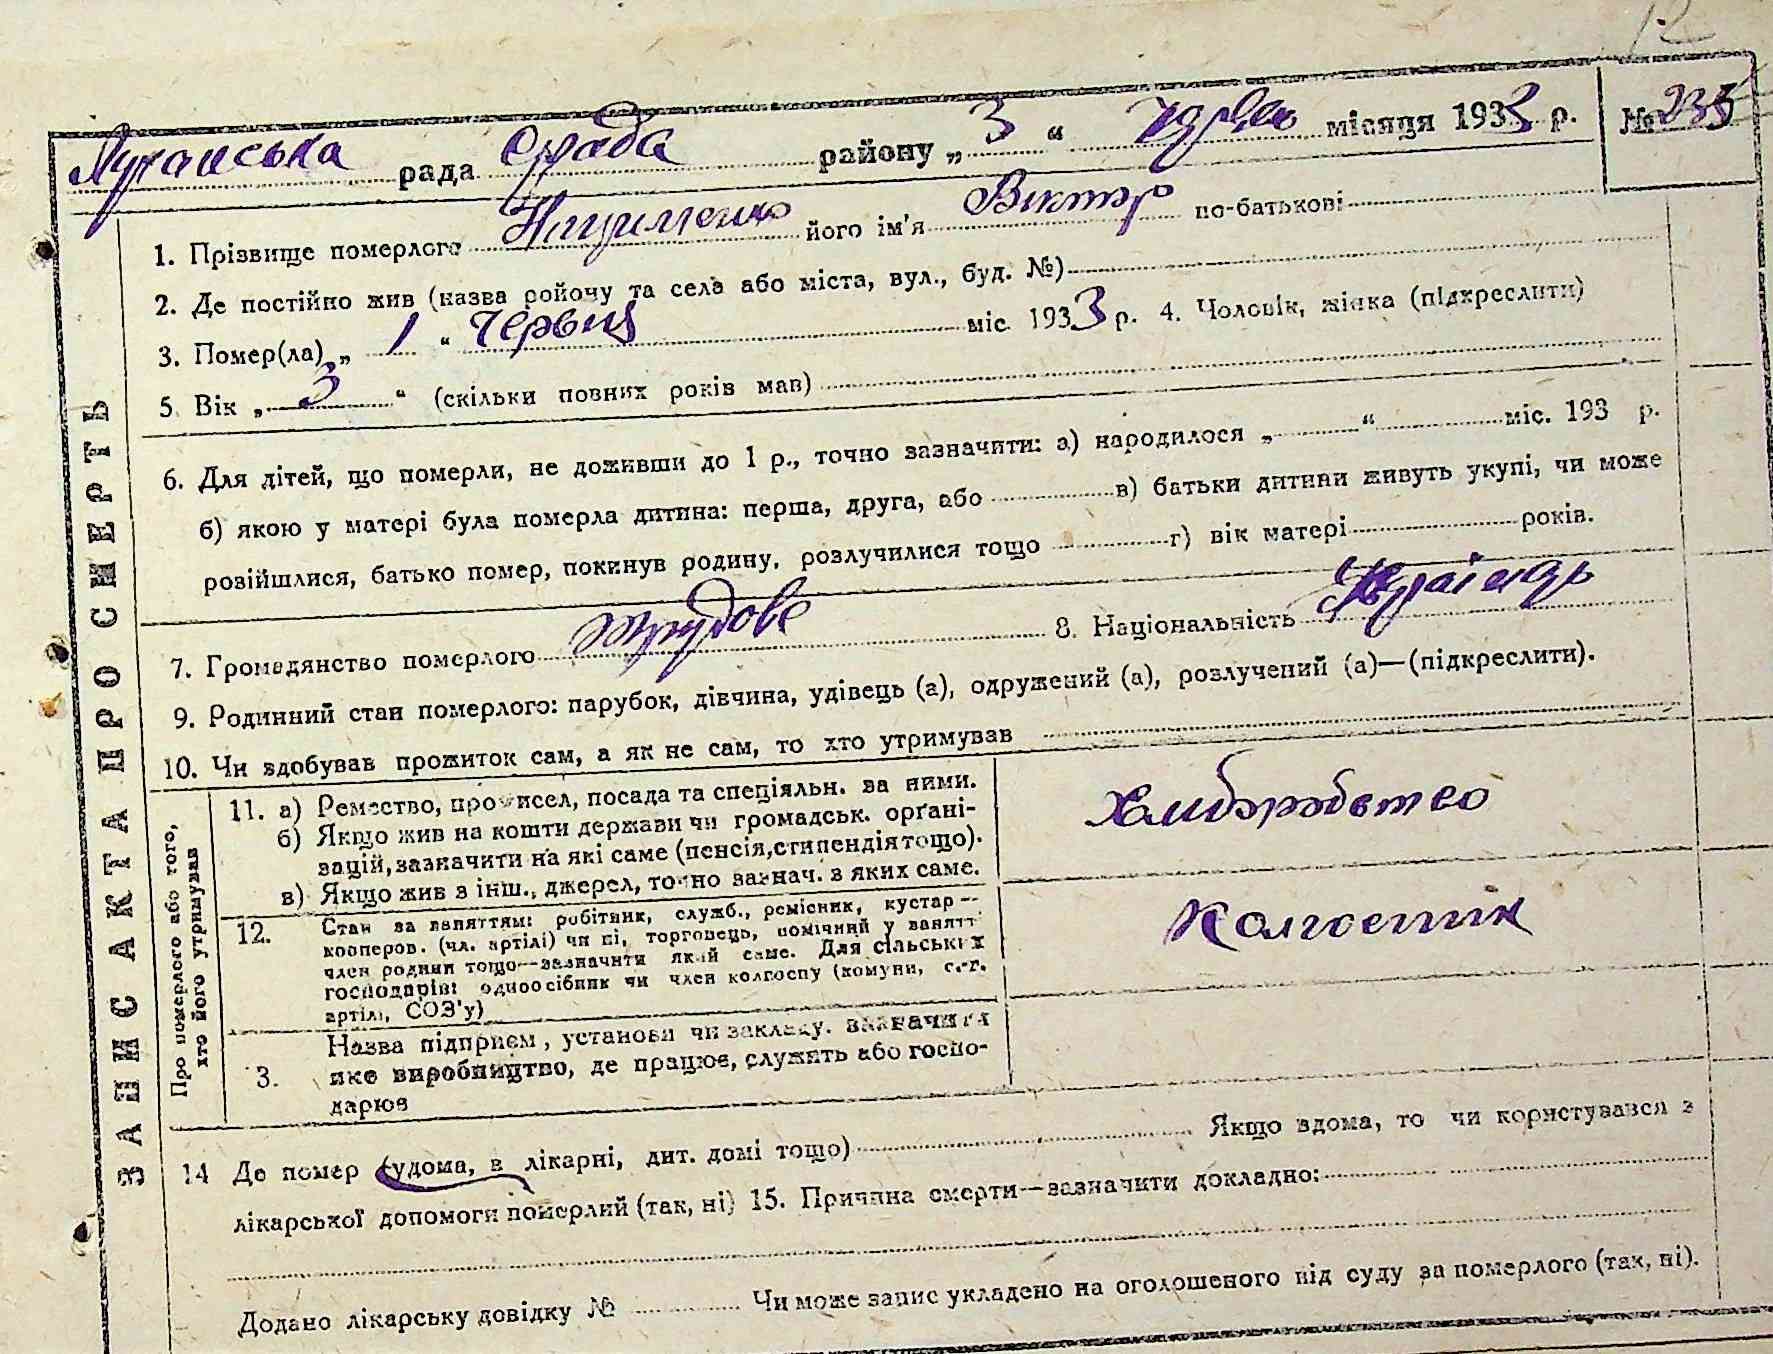 12
Луганська рада Сраба району „ 3 “ місяця 1933 р. № 235
1. Прізвище померлого його ім'я Віктор по-батькові
2. Де постійно жив (назва ройочу та села або міста, вул., буд. №)
3. Помер(ла) „ 1 “ Червня міс. 1933 р. 4. Чоловік, жінка (підкреслити)
5. Вік „ 3 “ (скільки повних років мав)
6. Для дітей, що померли, не доживши до 1 р., точно зазначити: а) народилося „ “ міс. 193 р.
б) якою у матері була померла дитина: перша, друга, або в) батьки дитини живуть укупі, чи може
розійшлися, батько помер, покинув родину, розлучилися тощо г) вік матері років.
7. Громадянство померлого трудове 8. Національність Українець
9. Родинний стан померлого: парубок, дівчина, удівець (а), одружений (а), розлучений (а)—(підкреслити).
10. Чи здобував прожиток сам, а як не сам, то хто утримував
11. а) Ремество, промисел, посада та спеціяльн. за ними.
б) Якщо жив на кошти держави чи громадськ. орґані-
зацій, зазначити на які саме (пенсія, стипендія тощо).
в) Якщо жив з інш., джерел, точно зазнач. з яких саме.
Хліборобство
12. Стан за заняттям: робітник, служб., ремісник, кустар—
кооперов. (чл. артілі) чи ні, торговець, помічний у занятт
член родини тощо—зазначити який саме. Для сільських
господарів: одноосібник чи член колгоспу (комуни, с.-г.
артілі, СОЗ'у)
Колгоспник
3. Назва підприєм, установи чи закладу. зазначити
яке виробництво, де працює, служить або госпо-
дарює
14 Де помер (удома, в лікарні, дит. домі тощо) Якщо вдома, то чи користувався з
лікарської допомоги померлий (так, ні) 15. Причина смерти—зазначити докладно:
Додано лікарську довідку № Чи може запис укладено на оголошеного від суду за померлого (так, ні).
ЗАПИС АКТА ПРО СМЕРТЬ
Про померлого або того,
хто його утримував